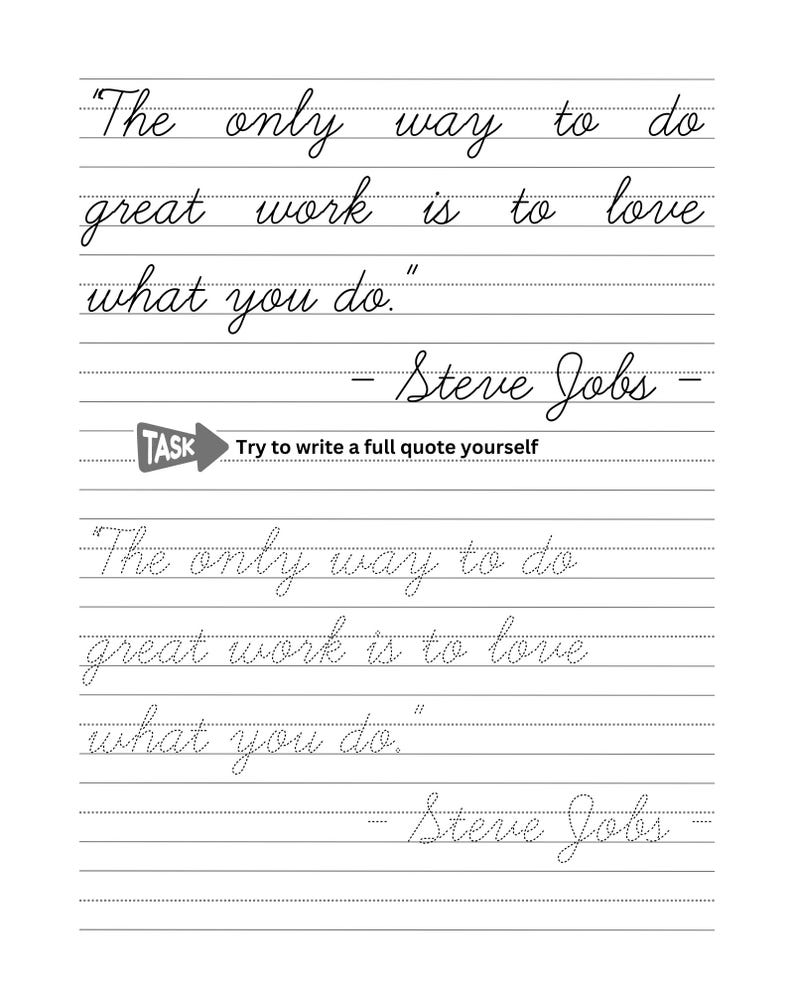 "The only way to do
great work is to love
what you do."
- Steve Jobs -
TASK Try to write a full quote yourself
"The only way to do
great work is to love
what you do."
- Steve Jobs -